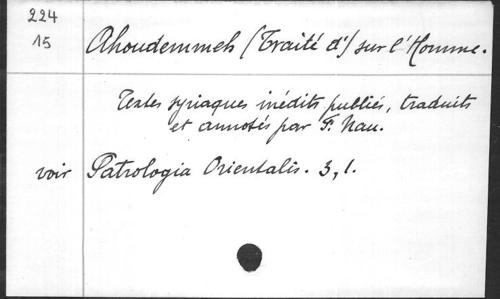 224
15
Ahoudemmeh (Traité d') sur l'Homme.
Textes syriaques inédits publiés, traduits
et annotés par F. Nau.
voir Patrologia Orientalis. 3, 1.